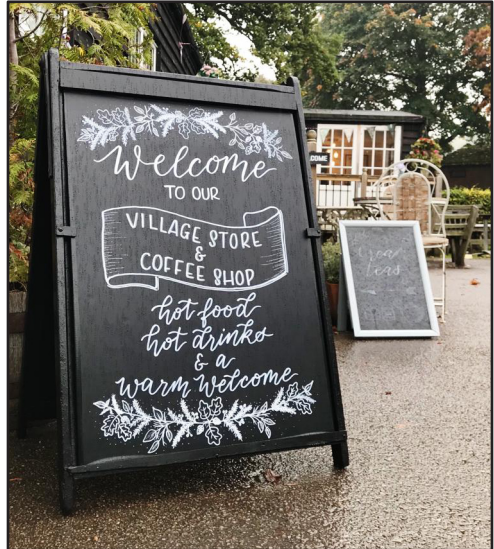 Welcome
TO OUR
VILLAGE STORE
&
COFFEE SHOP
hot food
hot drinks
& a
warm welcome